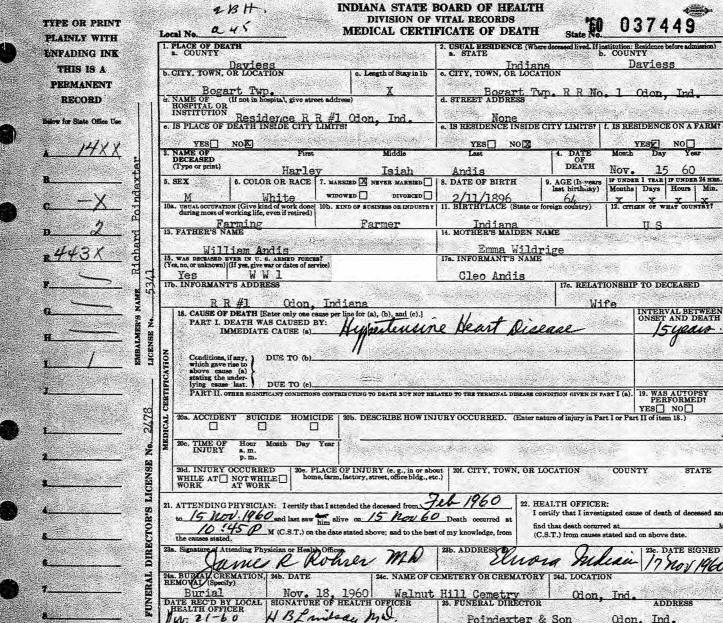 2BH.
a45
INDIANA STATE BOARD OF HEALTH
DIVISION OF VITAL RECORDS
MEDICAL CERTIFICATE OF DEATH
Local No.
State No. 60 037449
TYPE OR PRINT
PLAINLY WITH
UNFADING INK
THIS IS A
PERMANENT
RECORD
Below for State Office Use
A 14XX
B
C -X
D 2
E 443X
F
G
H
I 1
J
1
2
3
4
5
6
7
8
EMBALMER'S NAME Richard Poindexter LICENSE No. 5341
FUNERAL DIRECTOR'S LICENSE No. 2478
MEDICAL CERTIFICATION
1. PLACE OF DEATH
a. COUNTY
Daviess
2. USUAL RESIDENCE (Where deceased lived. If institution: Residence before admission)
a. STATE b. COUNTY
Indiana Daviess
b. CITY, TOWN, OR LOCATION c. Length of Stay in 1b
Bogart Twp. X
c. CITY, TOWN, OR LOCATION
Bogart Twp. R R No. 1 Odon, Ind.
d. NAME OF (If not in hospital, give street address)
HOSPITAL OR
INSTITUTION Residence R R #1 Odon, Ind.
d. STREET ADDRESS
None
e. IS PLACE OF DEATH INSIDE CITY LIMITS?
YES NO X
e. IS RESIDENCE INSIDE CITY LIMITS? f. IS RESIDENCE ON A FARM?
YES NO X YES X NO
3. NAME OF DECEASED (Type or print) First Middle Last
Harley Isiah Andis
4. DATE OF DEATH Month Day Year
Nov. 15 60
5. SEX 6. COLOR OR RACE 7. MARRIED X NEVER MARRIED
WIDOWED DIVORCED
M White
8. DATE OF BIRTH
2/11/1896
9. AGE (In years last birthday) IF UNDER 1 YEAR IF UNDER 24 HRS.
Months Days Hours Min.
64 X X X X
10a. USUAL OCCUPATION (Give kind of work done during most of working life, even if retired)
Farming
10b. KIND OF BUSINESS OR INDUSTRY
Farmer
11. BIRTHPLACE (State or foreign country)
Indiana
12. CITIZEN OF WHAT COUNTRY?
U S
13. FATHER'S NAME
William Andis
14. MOTHER'S MAIDEN NAME
Emma Wildrige
15. WAS DECEASED EVER IN U. S. ARMED FORCES?
(Yes, no, or unknown) (If yes, give war or dates of service)
Yes W W 1
17a. INFORMANT'S NAME
Cleo Andis
17b. INFORMANT'S ADDRESS
R R #1 Odon, Indiana
17c. RELATIONSHIP TO DECEASED
Wife
18. CAUSE OF DEATH [Enter only one cause per line for (a), (b), and (c).]
PART I. DEATH WAS CAUSED BY:
IMMEDIATE CAUSE (a) Hypertensive Heart Disease
INTERVAL BETWEEN
ONSET AND DEATH
15 years
Conditions, if any,
which gave rise to
above cause (a)
stating the under-
lying cause last.
DUE TO (b)
DUE TO (c)
PART II. OTHER SIGNIFICANT CONDITIONS CONTRIBUTING TO DEATH BUT NOT RELATED TO THE TERMINAL DISEASE CONDITION GIVEN IN PART I (a).
19. WAS AUTOPSY
PERFORMED?
YES NO
20a. ACCIDENT SUICIDE HOMICIDE
20b. DESCRIBE HOW INJURY OCCURRED. (Enter nature of injury in Part I or Part II of item 18.)
20c. TIME OF INJURY Hour Month Day Year
a. m.
p. m.
20d. INJURY OCCURRED
WHILE AT WORK NOT WHILE AT WORK
20e. PLACE OF INJURY (e. g., in or about
home, farm, factory, street, office bldg., etc.)
20f. CITY, TOWN, OR LOCATION COUNTY STATE
21. ATTENDING PHYSICIAN: I certify that I attended the deceased from Feb 1960
to 15 Nov. 1960 and last saw him alive on 15 Nov 60 Death occurred at
10:45 P M (C.S.T.) on the date stated above; and to the best of my knowledge, from
the causes stated.
22. HEALTH OFFICER:
I certify that I investigated cause of death of deceased and
find that death occurred at M
(C.S.T.) from causes stated and on above date.
23a. Signature of Attending Physician or Health Officer
James R Rohrer MD
23b. ADDRESS
Elnora Indiana
23c. DATE SIGNED
17 Nov 1960
24a. BURIAL, CREMATION,
REMOVAL (Specify)
Burial
24b. DATE
Nov. 18, 1960
24c. NAME OF CEMETERY OR CREMATORY
Walnut Hill Cemetry
24d. LOCATION
Odon, Ind.
DATE REC'D BY LOCAL
HEALTH OFFICER
Nov. 21-60
SIGNATURE OF HEALTH OFFICER
H B Lindsay M.D.
25. FUNERAL DIRECTOR ADDRESS
Poindexter & Son Odon, Ind.